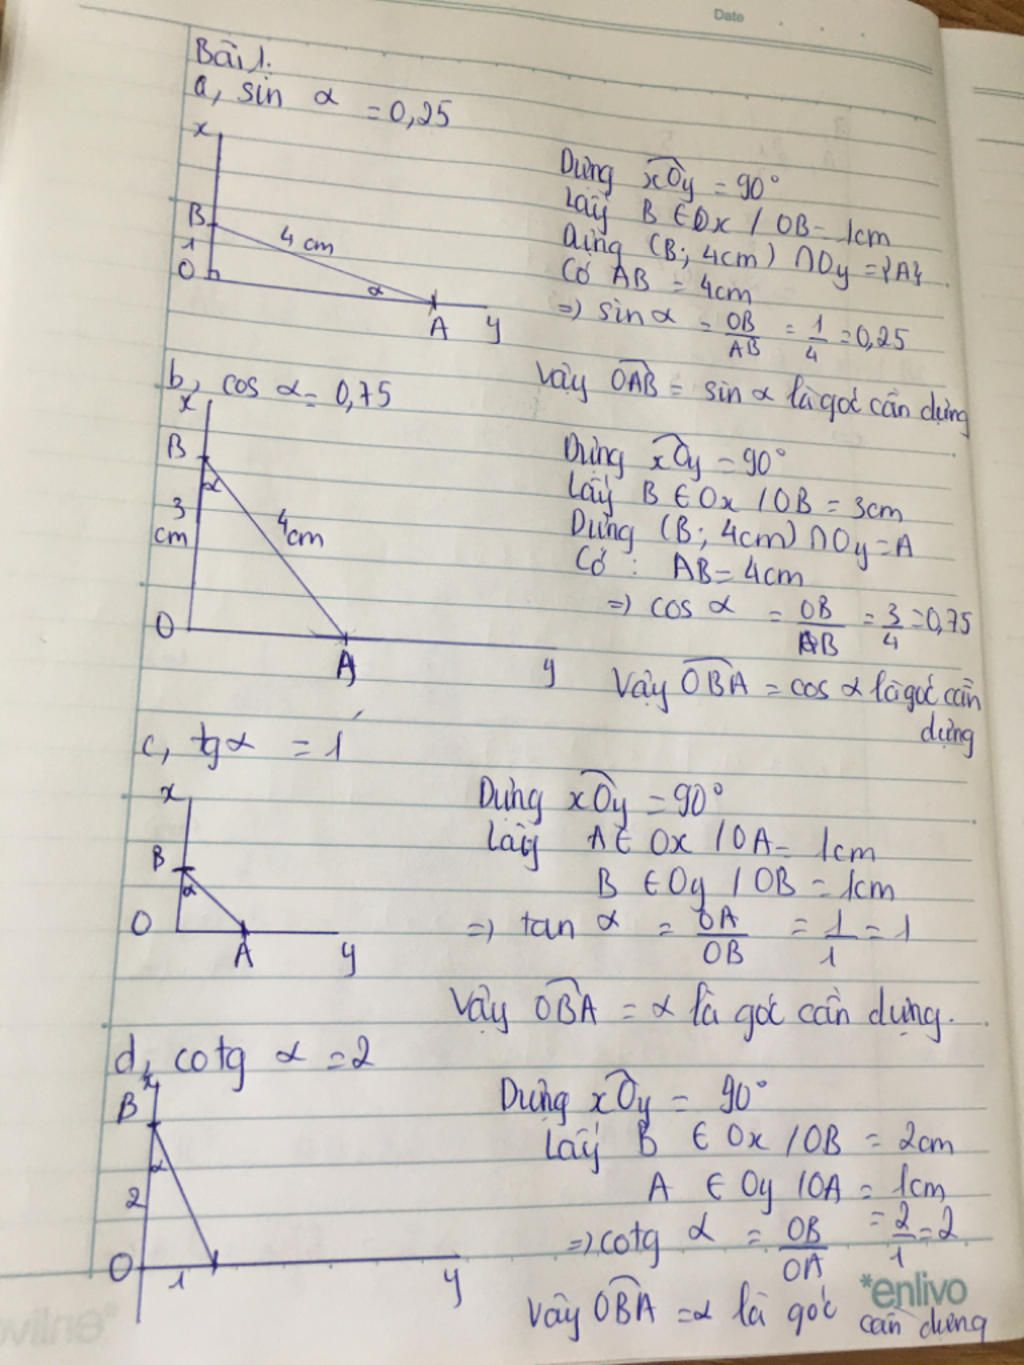 Date
Bài 1.
a, sin α = 0,25
x
B
1
O
4 cm
α
A
y
Dựng xOy = 90°
Lấy B ∈ Ox / OB = 1cm
Dựng (B; 4cm) ∩ Oy = {A}
Có AB = 4cm
=> sin α = OB/AB = 1/4 = 0,25
Vậy OAB = sin α là góc cần dựng
b, cos α = 0,75
x
B
α
3
cm
4cm
O
A
y
Dựng xOy = 90°
Lấy B ∈ Ox / OB = 3cm
Dựng (B; 4cm) ∩ Oy = A
Có : AB = 4cm
=> cos α = OB/AB = 3/4 = 0,75
Vậy OBA = cos α là góc cần
dựng
c, tgα = 1
x
B
α
O
A
y
Dựng xOy = 90°
Lấy A ∈ Ox / OA = 1cm
B ∈ Oy / OB = 1cm
=> tan α = OA/OB = 1/1 = 1
Vậy OBA = α là góc cần dựng.
d, cotg α = 2
x
B
α
2
O
1
y
Dựng xOy = 90°
Lấy B ∈ Ox / OB = 2cm
A ∈ Oy / OA = 1cm
=> cotg α = OB/OA = 2/1 = 2
Vậy OBA = α là góc cần dựng
*enlivo